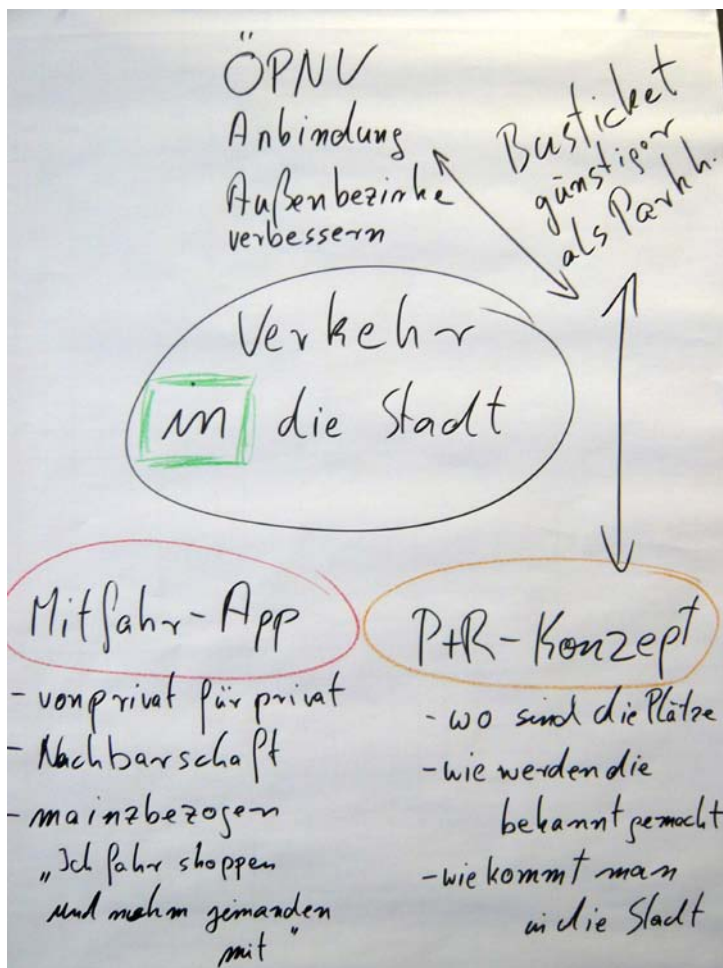 ÖPNV
Anbindung
Außenbezirke
verbessern
Busticket
günstiger
als Parkh.
Verkehr
in die Stadt
Mitfahr-App
- von privat für privat
- Nachbarschaft
- mainzbezogen
„Ich fahr shoppen
und nehm jemanden
mit"
P+R-Konzept
- wo sind die Plätze
- wie werden die
bekannt gemacht
- wie kommt man
in die Stadt